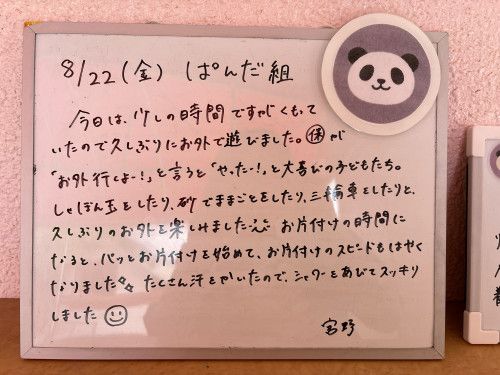 8/22(金) ぱんだ組
今日は、少しの時間ですがくもって
いたので久しぶりにお外で遊びました。㋭が
「お外行くよー!」と言うと「やったー!」と大喜びの子どもたち。
しゃぼん玉をしたり、砂でままごとをしたり、三輪車をしたりと、
久しぶりのお外を楽しみました。お片付けの時間に
なると、パッとお片付けを始めて、お片付けのスピードもはやく
なりました。たくさん汗をかいたので、シャワーをあびてスッキリ
しました
宮野